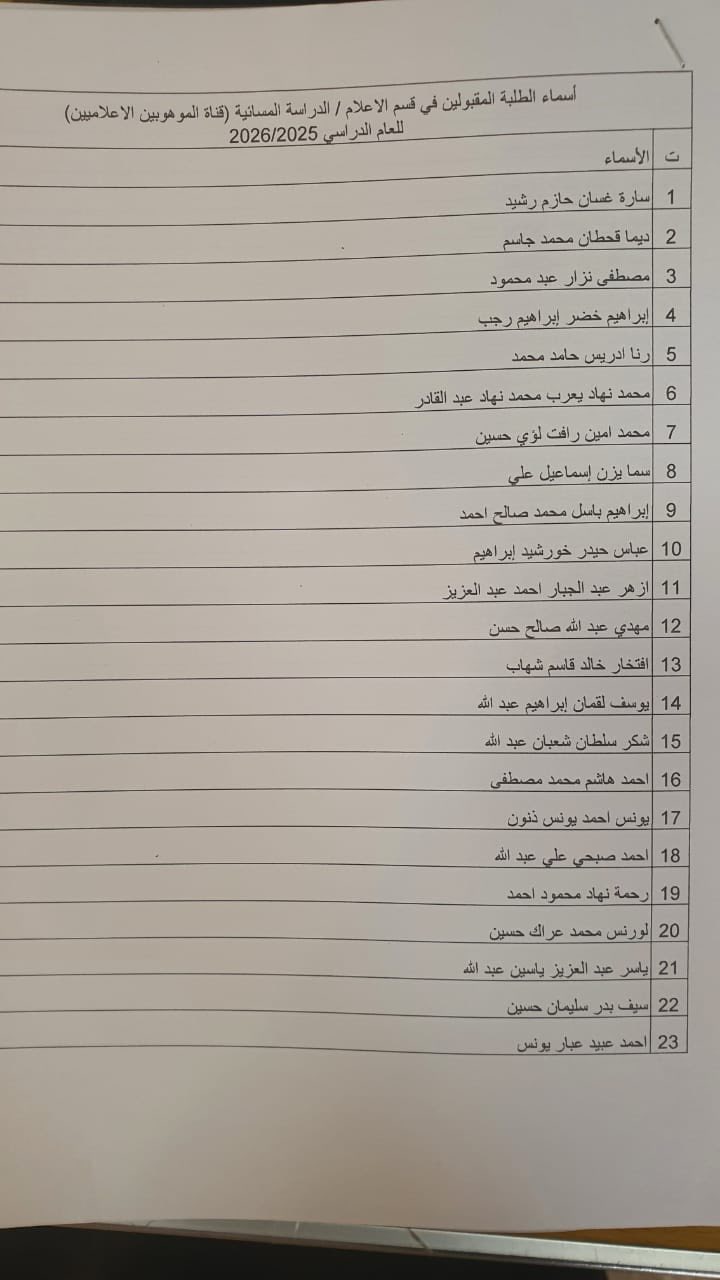 أسماء الطلبة المقبولين في قسم الاعلام / الدراسة المسائية (قناة الموهوبين الاعلاميين)
للعام الدراسي 2026/2025
ت الأسماء
1 سارة غسان حازم رشيد
2 ديما قحطان محمد جاسم
3 مصطفى نزار عبد محمود
4 إبراهيم خضر إبراهيم رجب
5 رنا ادريس حامد محمد
6 محمد نهاد يعرب محمد نهاد عبد القادر
7 محمد امين رافت لؤي حسين
8 سما يزن إسماعيل علي
9 إبراهيم باسل محمد صالح احمد
10 عباس حيدر خورشيد إبراهيم
11 ازهر عبد الجبار احمد عبد العزيز
12 مهدي عبد الله صالح حسن
13 افتخار خالد قاسم شهاب
14 يوسف لقمان إبراهيم عبد الله
15 شكر سلطان شعبان عبد الله
16 احمد هاشم محمد مصطفى
17 يونس احمد يونس ذنون
18 احمد صبحي علي عبد الله
19 رحمة نهاد محمود احمد
20 لورنس محمد عراك حسين
21 ياسر عبد العزيز ياسين عبد الله
22 سيف بدر سليمان حسين
23 احمد عبيد عبار يونس